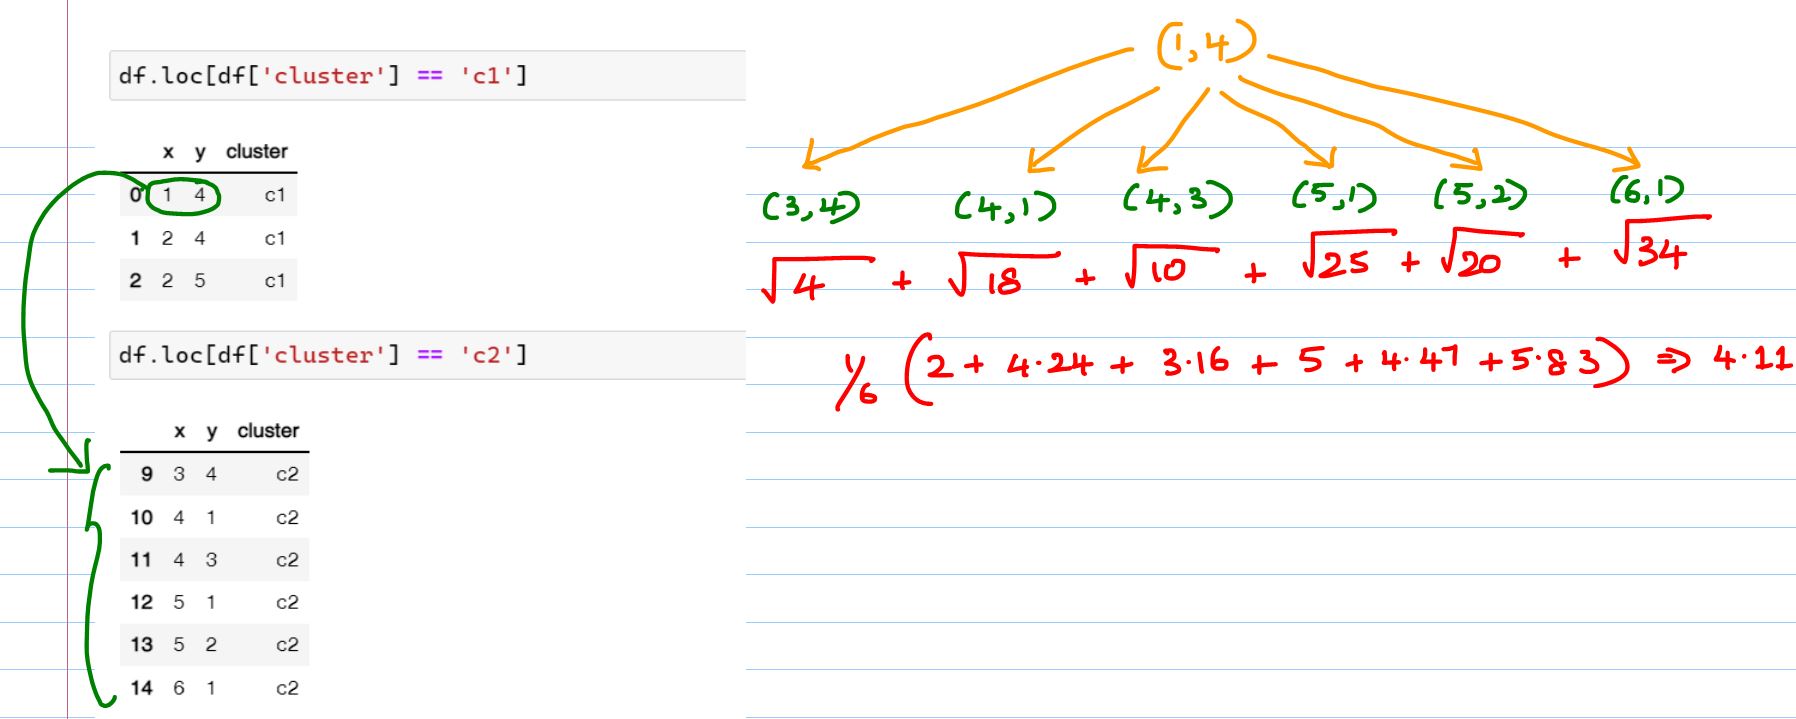 df.loc[df['cluster'] == 'c1']
x y cluster
0 1 4 c1
1 2 4 c1
2 2 5 c1
df.loc[df['cluster'] == 'c2']
x y cluster
9 3 4 c2
10 4 1 c2
11 4 3 c2
12 5 1 c2
13 5 2 c2
14 6 1 c2
(1,4)
(3,4) (4,1) (4,3) (5,1) (5,2) (6,1)
√4 + √18 + √10 + √25 + √20 + √34
1/6 (2 + 4.24 + 3.16 + 5 + 4.47 + 5.83) ⇒ 4.11